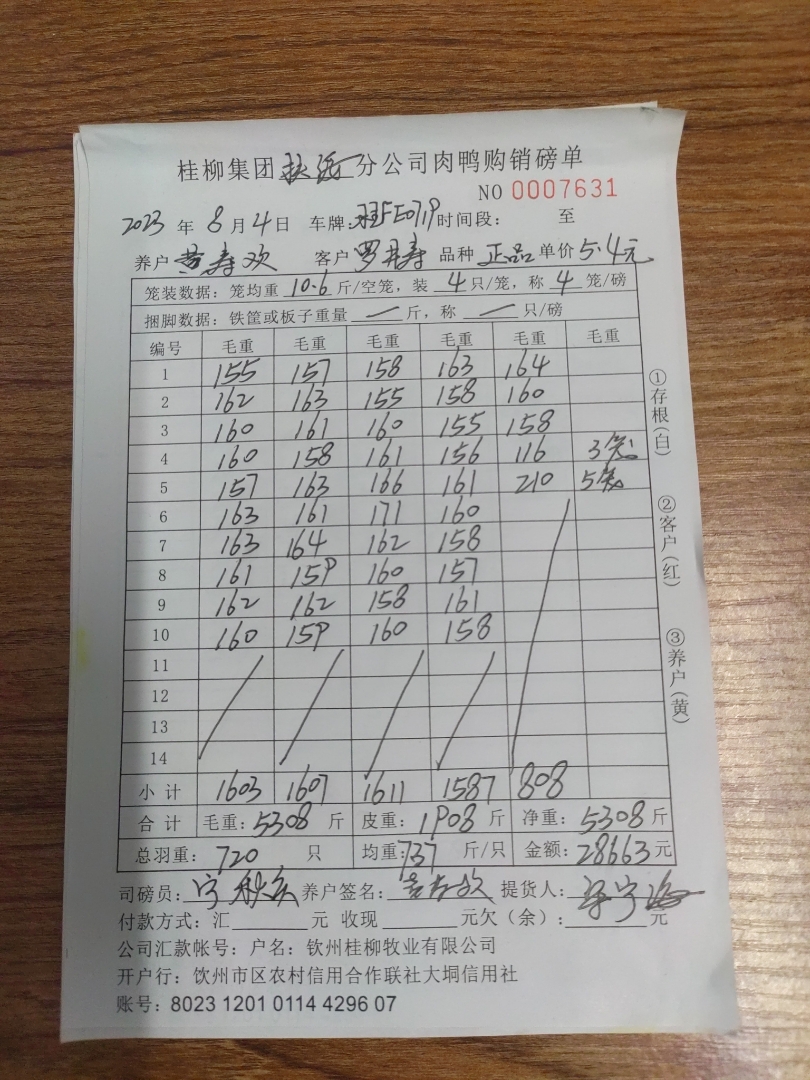 桂柳集团 分公司肉鸭购销磅单
NO 0007631
2023 年 8 月 4 日 车牌: 时间段: 至
养户 黄寿欢 客户 罗其寿 品种 正品 单价 5.4元
笼装数据: 笼均重 10.6 斤/空笼, 装 4 只/笼, 称 4 笼/磅
捆脚数据: 铁筐或板子重量 一 斤, 称 一 只/磅
编号 毛重 毛重 毛重 毛重 毛重 毛重
1 155 157 158 163 164
2 162 163 155 158 160
3 160 161 160 155 158
4 160 158 161 156 116 3笼
5 157 163 166 161 210 5笼
6 163 161 171 160
7 163 164 162 158
8 161 159 160 157
9 162 162 158 161
10 160 159 160 158
11
12
13
14
小计 1603 1607 1611 1587 808
合计 毛重: 5308 斤 皮重: 1908 斤 净重: 5308 斤
总羽重: 720 只 均重: 737 斤/只 金额: 28663 元
司磅员: 养户签名: 提货人:
付款方式: 汇 元 收现 元欠(余): 元
公司汇款帐号: 户名: 钦州桂柳牧业有限公司
开户行: 钦州市区农村信用合作联社大垌信用社
账号: 8023 1201 0114 4296 07
①存根(白)
②客户(红)
③养户(黄)